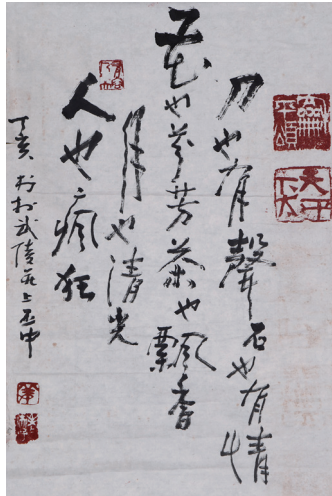 刀也有聲石也有情
花也芬芳茶也飄香
月也清光
人也瘋狂
丁亥 武陵 上